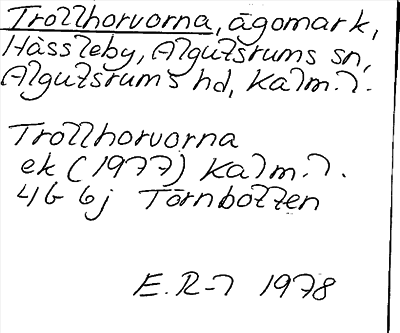 Trollhorvorna, ägomark,
Hässleby, Algutsrums sn,
Algutsrums hd, Kalm. l.
Trollhorvorna
ek (1977) Kalm. l.
4G 6j Törnbotten
E. R-l 1978